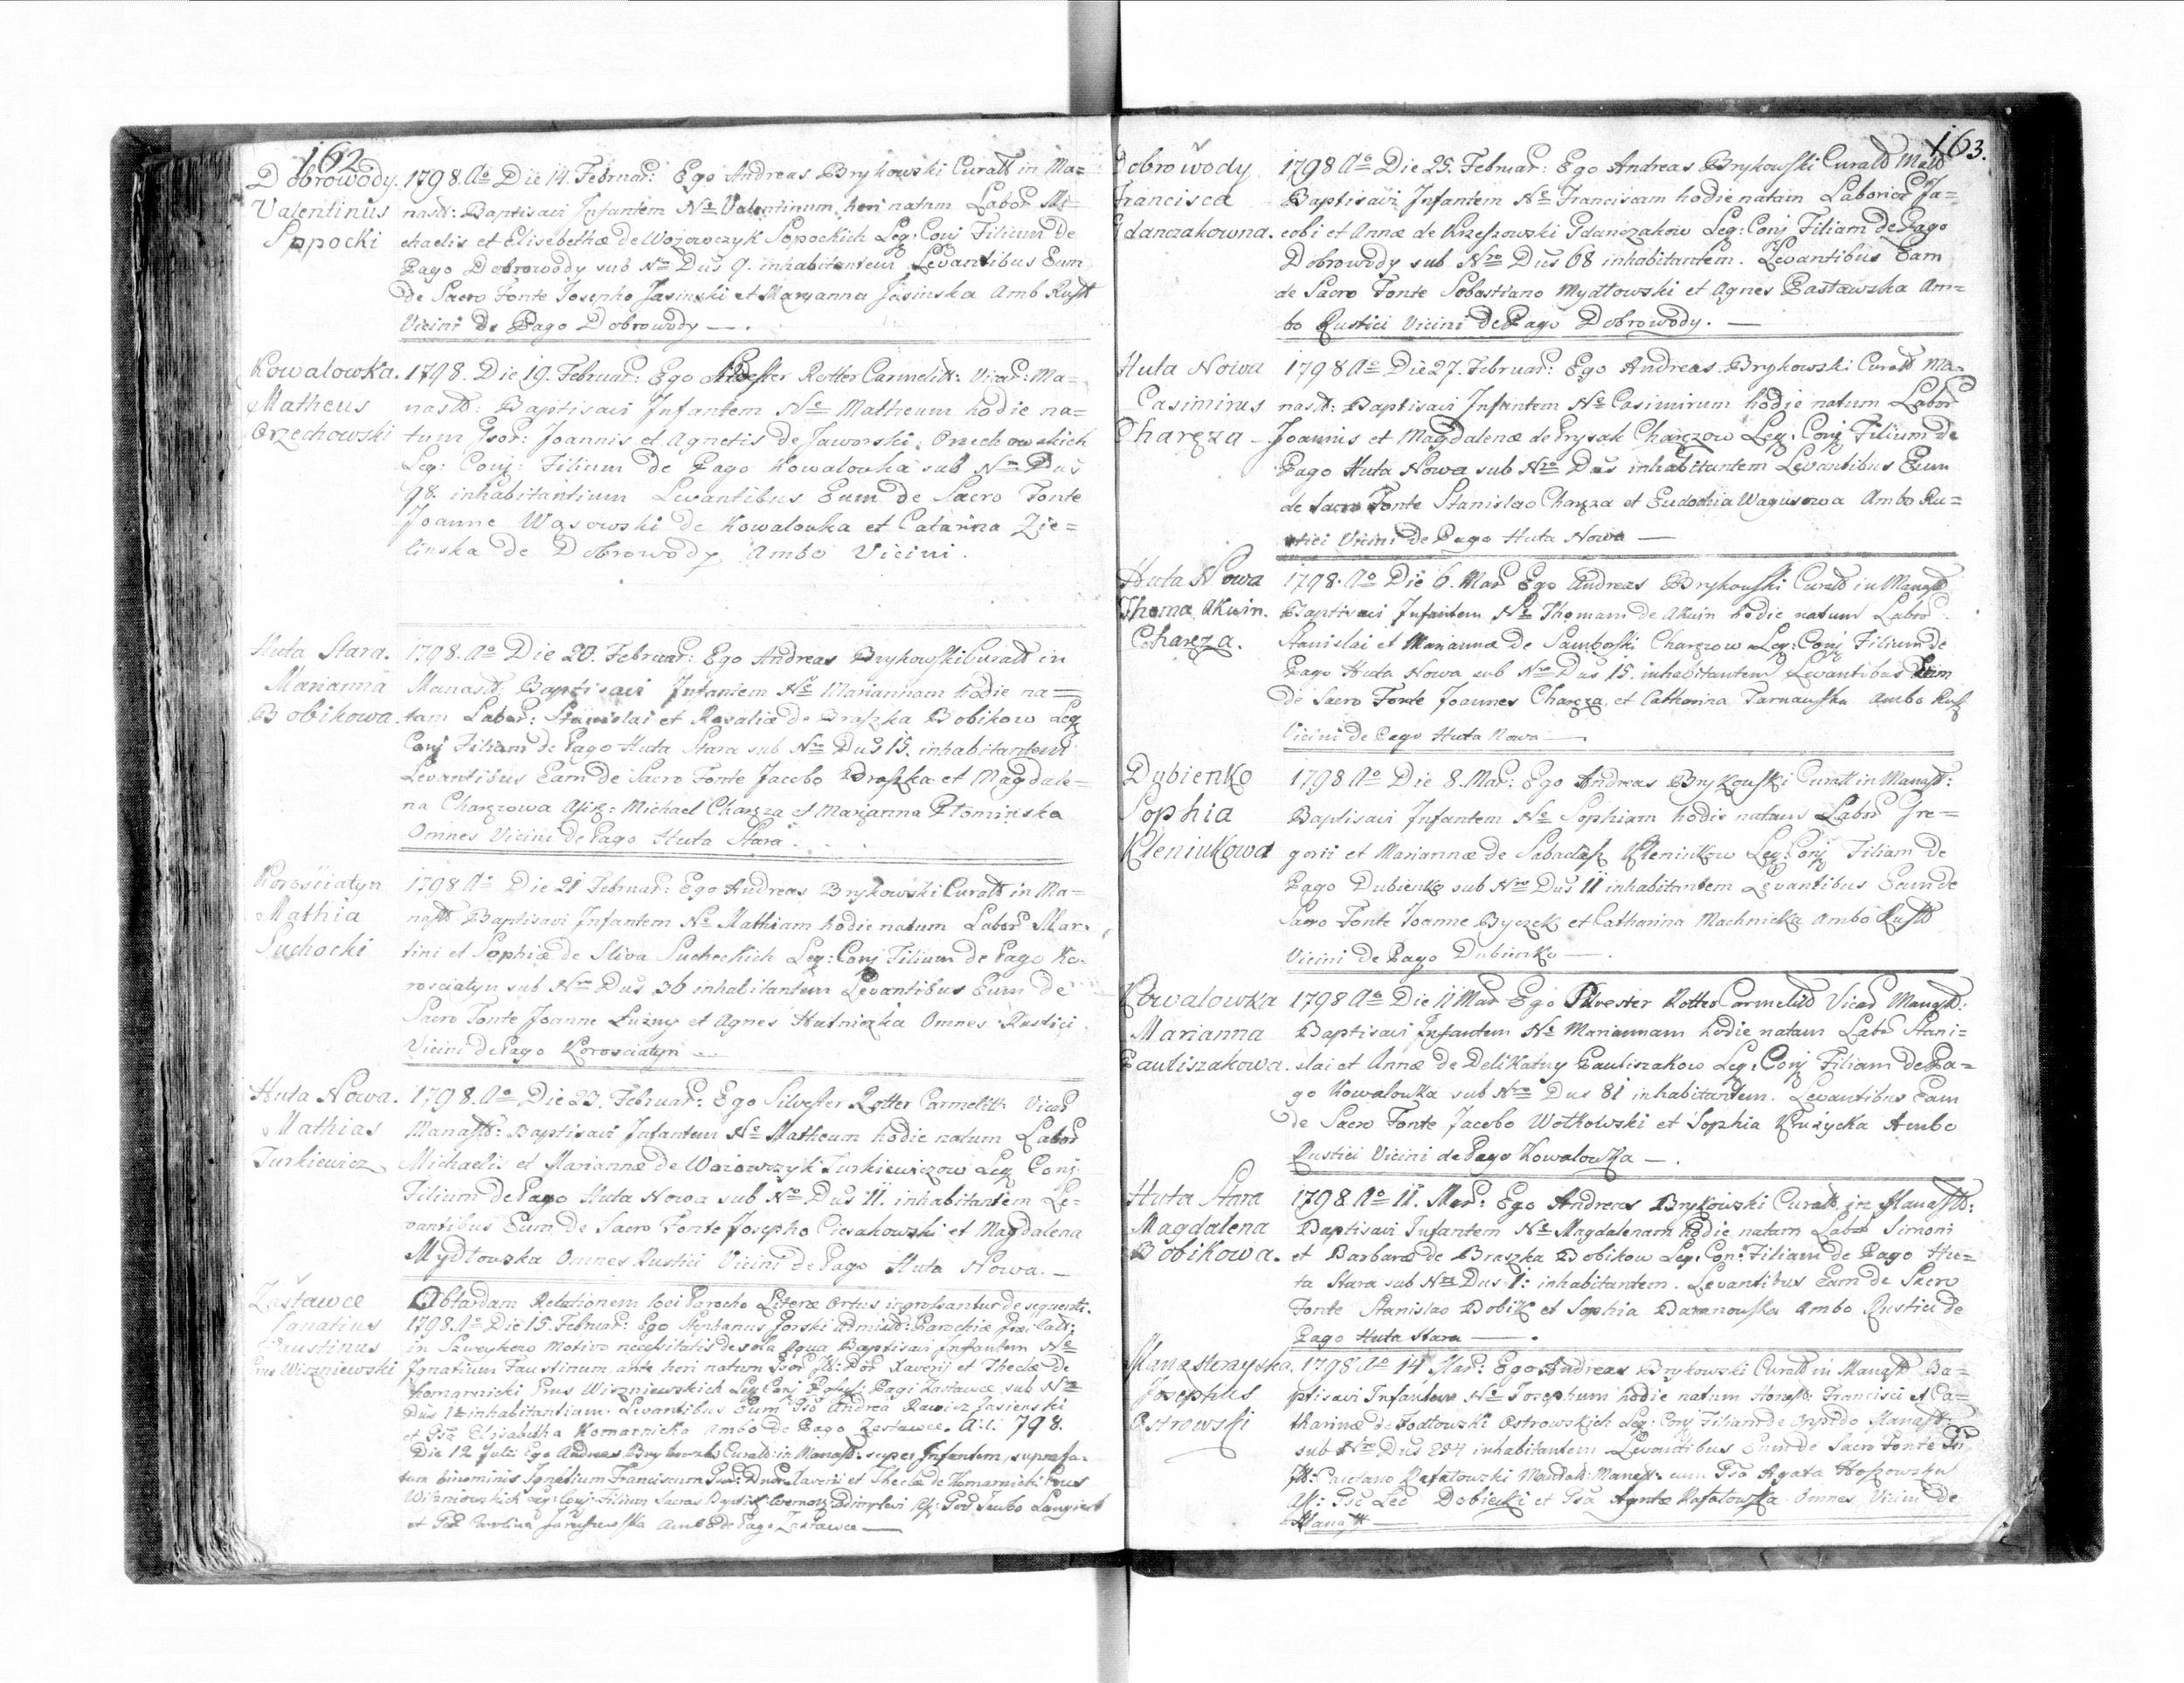 162
Dobrowody.
Valentinus
Sopocki
1798. Ao Die 14. Februar: Ego Andreas Brykowski Curatt in Ma=
nastt: Baptisavi Infantem Ne Valentinum heri natum Labor Mi=
chaelis et Elisebethæ de Wojowczyk Sopockich Leg: Conj Filium de
Pago Dobrowody sub Nro Dus 9. inhabitantem Levantibus Eum
de Sacro Fonte Josepho Jasinski et Maryanna Jasinska Amb Rustt
Vicini de Pago Dobrowody —.
Kowalowka.
Matheus
Orzechowski
1798. Die 19. Februar: Ego Silvester Rotter Carmelitt: Vicar: Ma=
nastt: Baptisavi Infantem Ne Matheum hodie na=
tum Gsor: Joannis et Agnetis de Jaworski Orzechowskich
Leg: Conj: Filium de Pago Kowalowka sub Nro Dus
98. inhabitantium Levantibus Eum de Sacro Fonte
Joanne Wąsowski de Kowalowka et Catarina Zie=
linska de Dobrowody Ambo Vicini.
Huta Stara.
Marianna
Bobikowa
1798. Ao Die 20. Februar: Ego Andreas Brykowski Curatt in
Manastt Baptisavi Infantem Ne Mariannam hodie na=
tam Labor: Stanislai et Rosaliæ de Braszka Bobikow Leg
Conj Filiam de Pago Huta Stara sub Nro Dus 15. inhabitantem
Levantibus Eam de Sacro Fonte Jacobo Braszka et Magdale=
na Charęzowa Assis: Michael Charęza et Marjanna Płominska
Omnes Vicini de Pago Huta Stara.
Korosciatyn
Mathia
Suchocki
1798 Ao Die 21 Februar: Ego Andreas Brykowski Curatt in Ma=
nastt Baptisavi Infantem Ne Mathiam hodie natum Labor Mar=
tini et Sophiæ de Sliva Sucheckich Leg: Conj Filium de Pago Ko=
rosciatyn sub Nro Dus 36 inhabitantem Levantibus Eum de
Sacro Fonte Joanne Luzny et Agnes Hutniczka Omnes Rustici
Vicini de Pago Korosciatyn —
Huta Nowa.
Mathias
Turkiewicz
1798. Ao Die 23. Februar: Ego Silvester Rotter Carmelitt Vicar
Manastt: Baptisavi Infantem Ne Matheum hodie natum Labor
Michaelis et Mariannæ de Woiowczyk Turkiewiczow Leg Conj
Filium de Pago Huta Nowa sub Nro Dus 11. inhabitantem Le=
vantibus Eum de Sacro Fonte Josepho Ciesakowski et Magdalena
Mydlowska Omnes Rustici Vicini de Pago Huta Nowa. —
Zastawce
Ignatius
Faustinus
Wiszniewski
Obtardam Relationem loci Parocho Literæ Ortus ingrossantur de sequenti.
1798. Ao Die 15. Februar: Ego Stephanus Gorski Parochiæ
in motivo necessitatis de sola Aqua Baptisavi Infantem Ne
Ignatium Faustinum ante heri natum Xaverij et Theclæ de
Komarnicki Wiszniewskich Leg Conj Pagi Zastawce sub Nro
Dus 1 inhabitantium. Levantibus Eum Andrea Rawicz Jasienski
et Elisabetha Komarnicka Ambo de Pago Zastawce. A: 798.
Die 12 Julii Ego Andreas Brykowski Curatt: in Manastt: super Infantem, suprafa=
tum binominis Ignatium Franciscum Xaverii et Theclæ de Komarnicki
Wiszniowskich Leg: Conj: Filium Sacras
et Carolina Ambo de Pago Zastawce —
163.
Dobrowody
Francisca
Gdanczakowna.
1798 Ao Die 25. Februar: Ego Andreas Brykowski Curatt
Baptisavi Infantem Ne Franciscam hodie natam Laborior Ja=
cobi et Annæ de Krzeszowski Gdanczakow Leg: Conj Filiam de Pago
Dobrowody sub Nro Dus 68 inhabitantem. Levantibus Eam
de Sacro Fonte Sebastiano Mydłowski et Agnes Pastawska Am=
bo Rustici Vicini de Pago Dobrowody. —
Huta Nowa
Casimirus
Charęza
1798 Ao Die 27. Februar: Ego Andreas Brykowski Curatt Ma=
nastt: Baptisavi Infantem Ne Casimirum hodie natum Labor
Joannis et Magdalenæ de Grysak Charęzow Leg: Conj Filium de
Pago Huta Nowa sub Nro Dus inhabitantem Levantibus Eum
de Sacro Fonte Stanislao Charęza et Eudochia Wagusowa Ambo Ru=
stici Vicini de Pago Huta Nowa —
Huta Nowa
Thoma Akwin.
Charęza.
1798. Ao Die 6. Mar Ego Andreas Brykowski Curatt in Manastt
Baptisavi Infantem Ne Thomam de Akuin hodie natum Labor
Stanislai et Mariannæ de Samborski Charęzow Leg: Conj Filium de
Pago Huta Nowa sub Nro Dus 15. inhabitantem Levantibus Eum
de Sacro Fonte Joannes Charęza et Catharina Tarnawska Ambo Rust
Vicini de Pago Huta Nowa —
Dubienko
Sophia
Kleniukowa
1798 Ao Die 8. Mar: Ego Andreas Brykowski Curatt in Manastt:
Baptisavi Infantem Ne Sophiam hodie natam Labor Gre=
gorii et Mariannæ de Sabadasz Kleniukow Leg: Conj Filiam de
Pago Dubienko sub Nro Dus 11 inhabitantem Levantibus Eam de
Sacro Fonte Joanne Byczek et Catharina Machnicka Ambo Rustt
Vicini de Pago Dubienko —.
Kowalowka
Marianna
Pauliszakowa.
1798 Ao Die 11 Mar Ego Silvester Rotter Carmelitt Vicar Manastt:
Baptisavi Infantem Ne Mariannam hodie natam Labo Stani=
slai et Annæ de Delikatny Pauliszakow Leg: Conj Filiam de Pa=
go Kowalowka sub Nro Dus 81 inhabitantem. Levantibus Eam
de Sacro Fonte Jacobo Wotkowski et Sophia Krużycka Ambo
Rustici Vicini de Pago Kowalowka —.
Huta Stara
Magdalena
Bobikowa.
1798 Ao 11. Mar: Ego Andreas Brykowski Curatt in Manastt:
Baptisavi Infantem Ne Magdalenam hodie natam Labor Simoni
et Barbaræ de Braszka Bobikow Leg: Con: Filiam de Pago Hu=
ta Stara sub Nro Dus 1: inhabitantem. Levantibus Eam de Sacro
Fonte Stanislao Bobik et Sophia Baranowska Ambo Rustici de
Pago Huta Stara —.
Manasterzyska.
Josephus
Ostrowski
1798 Ao 14 Mar: Ego Andreas Brykowski Curatt in Manastt Ba=
ptisavi Infantem Ne Josephum hodie natum Honest: Francisci et Ca=
tharinæ de Ostrowskich Leg: Conj Filium de Oppido Manastt:
sub Nro Dus 204 inhabitantem Levantibus Eum de Sacro Fonte
Rafałowski Mandat: Manast: cum Agata
Dobiecki et Rafałowska Omnes Vicini de
Manastt —